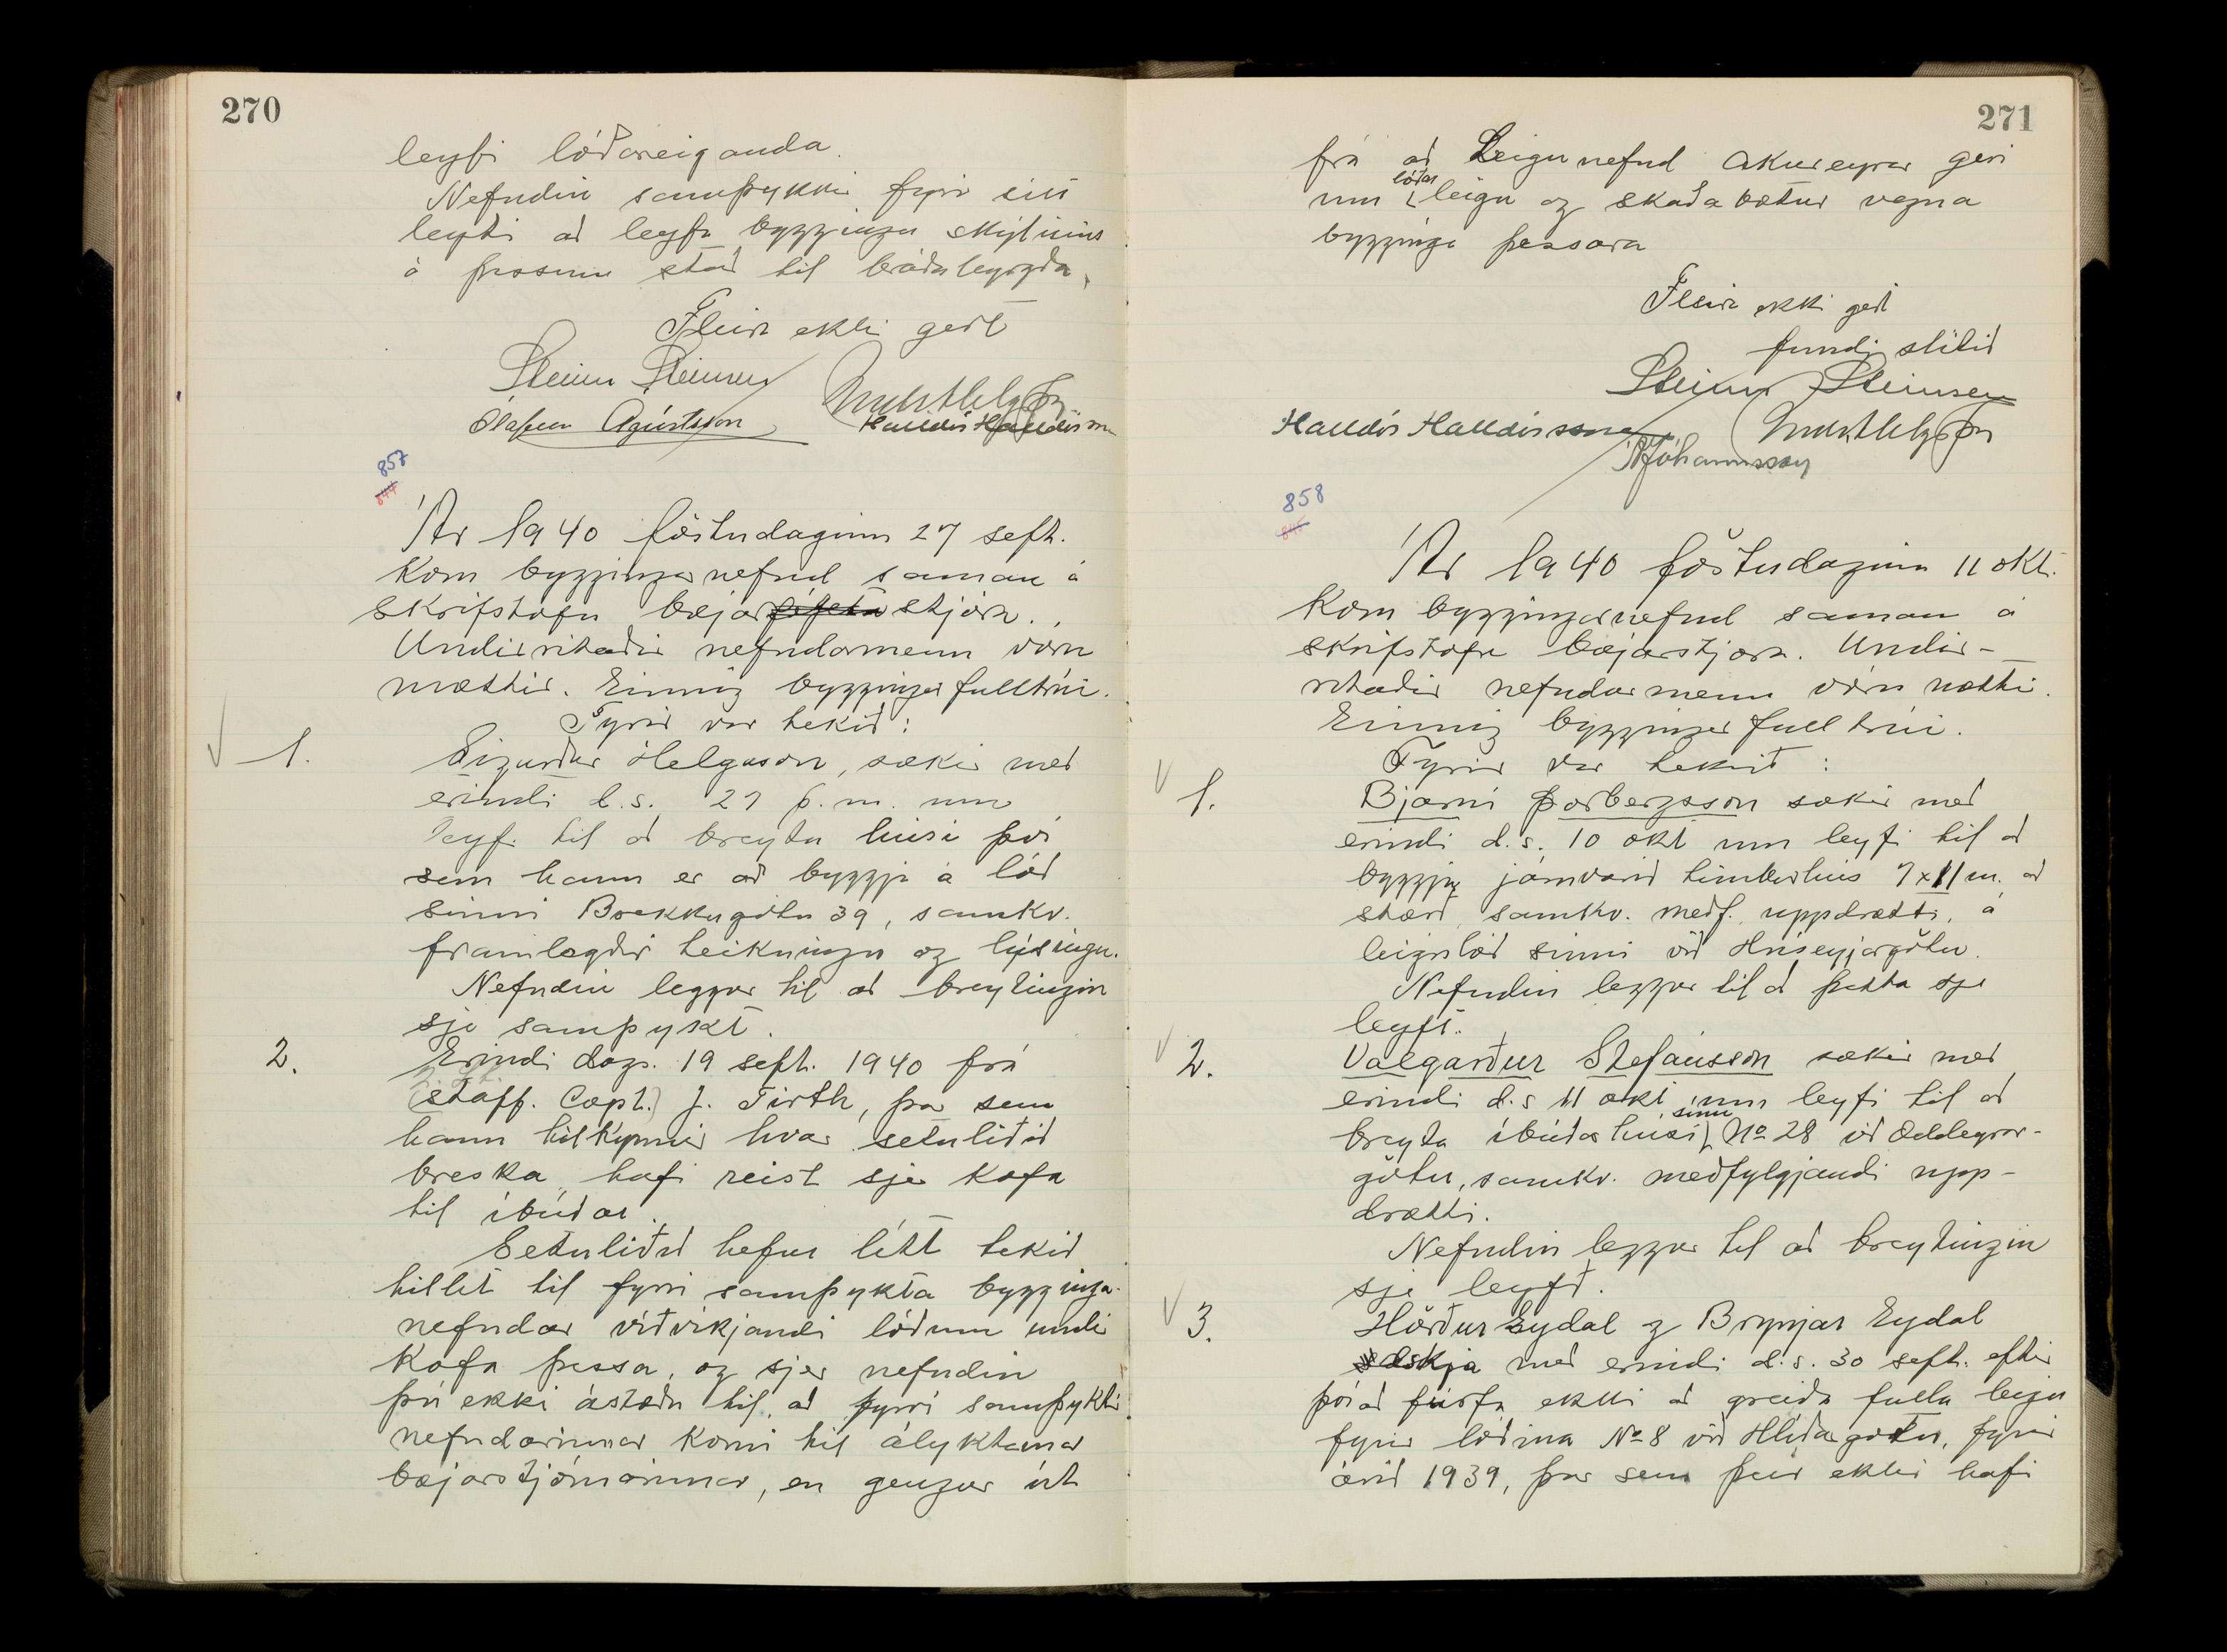 270
leyfi lóðareiganda.
Nefndin samþykkir fyrir sitt
leyti að leyfa byggingu skýlisins
á þessum stað til bráðabyrgða.
Fleira ekki gert
Steinn Steinsen
Ólafur Ágústsson Halldór Halldórsson
857
844
Ár 1940 föstudaginn 27 sept.
kom bygginganefnd saman á
skrifstofu bæjarfógeta stjóra.
Undirritaðir nefndarmenn vóru
mættir. Einnig byggingafulltrúi.
Fyrir var tekið:
1. Sigurður Helgason, sækir með
erindi d.s. 27 þ.m. um
leyfi til að breyta húsi því
sem hann er að byggja á lóð
sinni Brekkugötu 39, samkv.
framlagðri teikningu og lýsingu.
Nefndin leggur til að breytingin
sje samþykt.
2. Erindi dags. 19 sept. 1940 frá
(staff. Capt.) J. Firth, þar sem
hann tilkynnir hvar setuliðið
breska, hafi reist sjer kofa
til íbúðar.
Setuliðið hefur lítt tekið
tillit til fyrri samþykta bygginga-
nefndar viðvíkjandi lóðum undir
kofa þessa, og sjer nefndin
því ekki ástæðu til, að fyrri samþykktir
nefndarinnar komi til ályktunar
bæjarstjórnarinnar, en gengur út
271
frá að Leigunefnd Akureyrar geri
um lóðar leigu og skaðabætur vegna
bygginga þessara
Fleira ekki gert
fundi slitið
Steinn Steinsen
Halldór Halldórsson
Jóhannsson
858
845
Ár 1940 föstudaginn 11 okt.
kom bygginganefnd saman á
skrifstofu bæjarstjóra. Undir-
ritaðir nefndarmenn vóru mættir.
Einnig byggingafulltrúi.
Fyrir var tekið:
1. Bjarni Þorbergsson sækir með
erindi d.s. 10 okt um leyfi til að
byggja járnvarið timburhús 7x11 m. að
stærð, samkv. meðf. uppdrætti, á
leigulóð sinni við Hríseyjargötu.
Nefndin leggur til að þetta sje
leyft.
2. Valgarður Stefánsson sækir með
erindi d.s 11 okt, um leyfi til að
breyta íbúðarhúsi sínu No 28 við Oddeyrar-
götu, samkv. meðfylgjandi upp-
drætti.
Nefndin leggur til að breytingin
sje leyfð.
3. Hörður Eydal og Brynjar Eydal
æskja með erindi d.s. 30 sept. eftir
því að þurfa ekki að greiða fulla leigu
fyrir lóðina No 8 við Hlíðargötu, fyrir
árið 1939, þar sem þeir ekki hafi